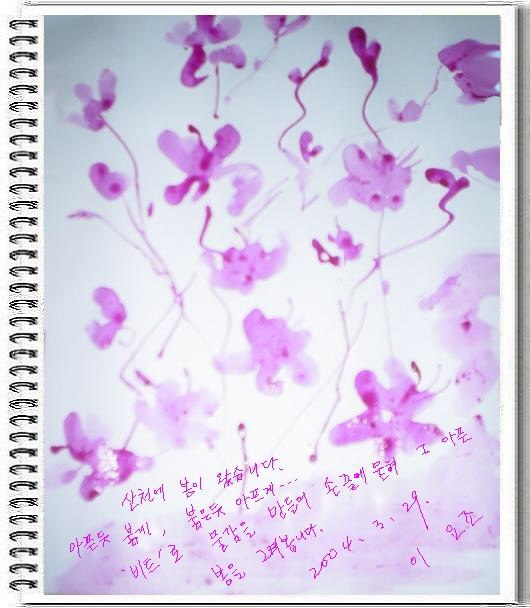 산천에 봄이 왔습니다.
아픈듯 붉게, 붉은듯 아프게...
'비트'로 물감을 만들어 손끝에 묻혀 그 아픈
봄을 그려봅니다.
2004. 3. 29.
이 오조